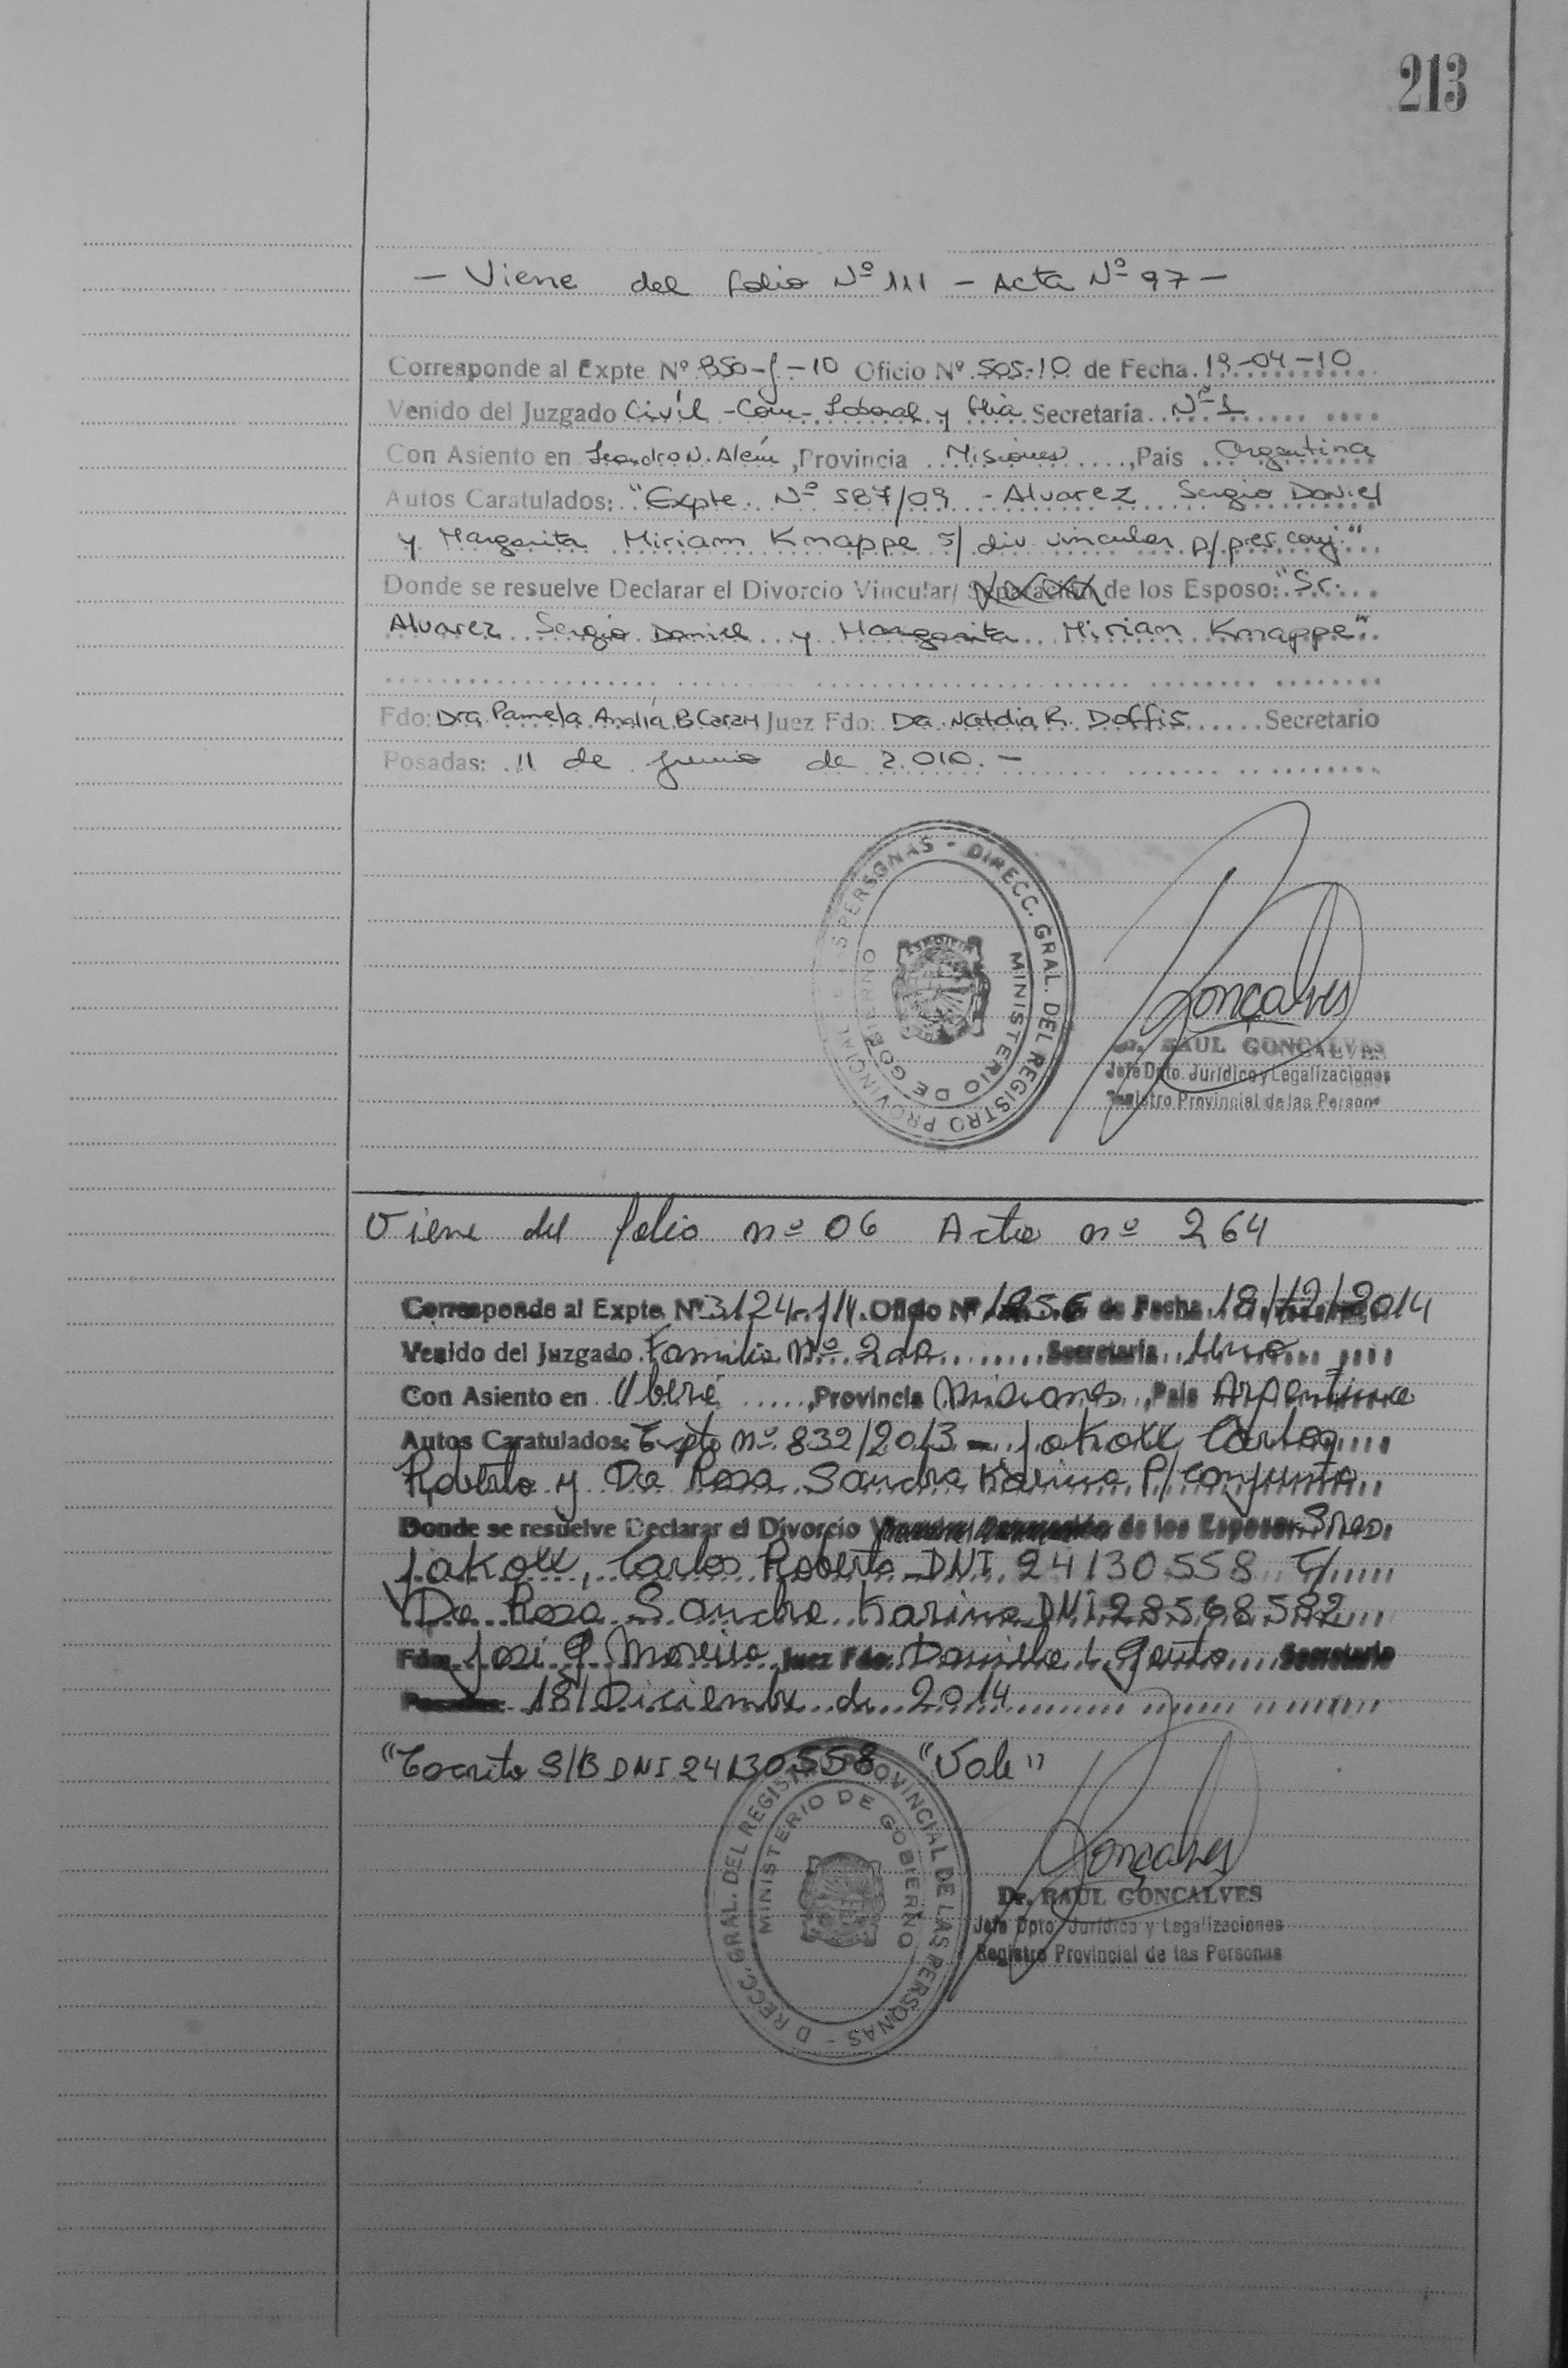 213
— Viene del folio Nº 111 — Acta Nº 97 —
Corresponde al Expte. Nº 850-J-10 Oficio Nº 505-10 de Fecha 19-04-10
Venido del Juzgado Civil - Com - Laboral y flia Secretaría Nº 1
Con Asiento en Leandro N. Alem, Provincia Misiones, Pais Argentina
Autos Caratulados: "Expte. Nº 587/09 - Alvarez Sergio Daniel
y Margarita Miriam Knappe s/ div vincular p/ pres. conj."
Donde se resuelve Declarar el Divorcio Vincular/ de los Esposo: "Sr.
Alvarez Sergio Daniel y Margarita Mirian Knappe"
Fdo: Dra. Pamela Analía B Juez Fdo: Dra. Natdia R. Doffis Secretario
Posadas: 11 de junio de 2.010. —
DIRECC. GRAL. DEL REGISTRO PROVINCIAL DE LAS PERSONAS -
MINISTERIO DE GOBIERNO
Gonçalves
Dr. RAUL GONCALVES
Jefe Dpto. Jurídico y Legalizaciones
Registro Provincial de las Persona
Viene del folio nº 06 Acta nº 264
Corresponde al Expte. Nº 3124-J-14. Oficio Nº 1856 de Fecha 18/12/2014
Venido del Juzgado Familia Nº 2do Secretaria Uno
Con Asiento en Oberá, Provincia Misiones, Pais Argentina
Autos Caratulados: Expte nº 832/2013 - Carlos
Roberto y Da Rosa Sandra Karina P/ conjunta
Donde se resuelve Declarar el Divorcio de los Esposos Sres.
Carlos Roberto DNI 24130558 y/
Da Rosa Sandra Karina DNI 28568582
Fdo: José G Juez Fdo: Secretario
18/ Diciembre de 2014
"Escrito S/B DNI 24130558 "Vale"
DIRECC. GRAL. DEL REGISTRO PROVINCIAL DE LAS PERSONAS -
MINISTERIO DE GOBIERNO
Gonçalves
Dr. RAUL GONCALVES
Jefe Dpto. Jurídico y Legalizaciones
Registro Provincial de las Personas